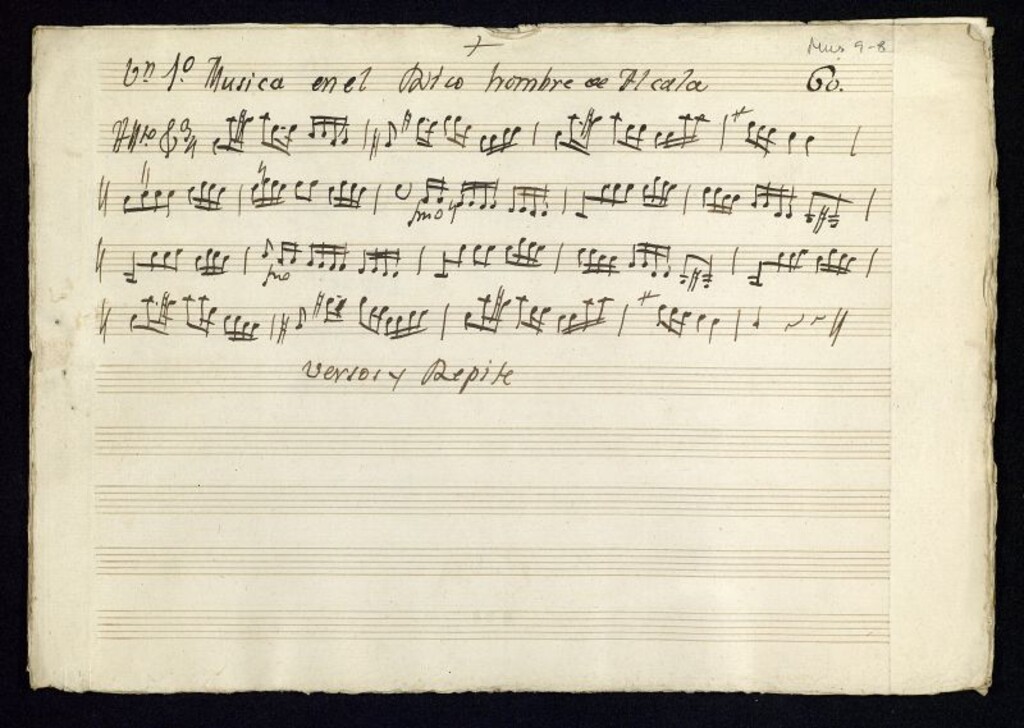 Mus 9-8
Vn 1º Musica en el Rico hombre de Alcala 60.
All.to 3/4
pmo
pmo
Versos y Repite